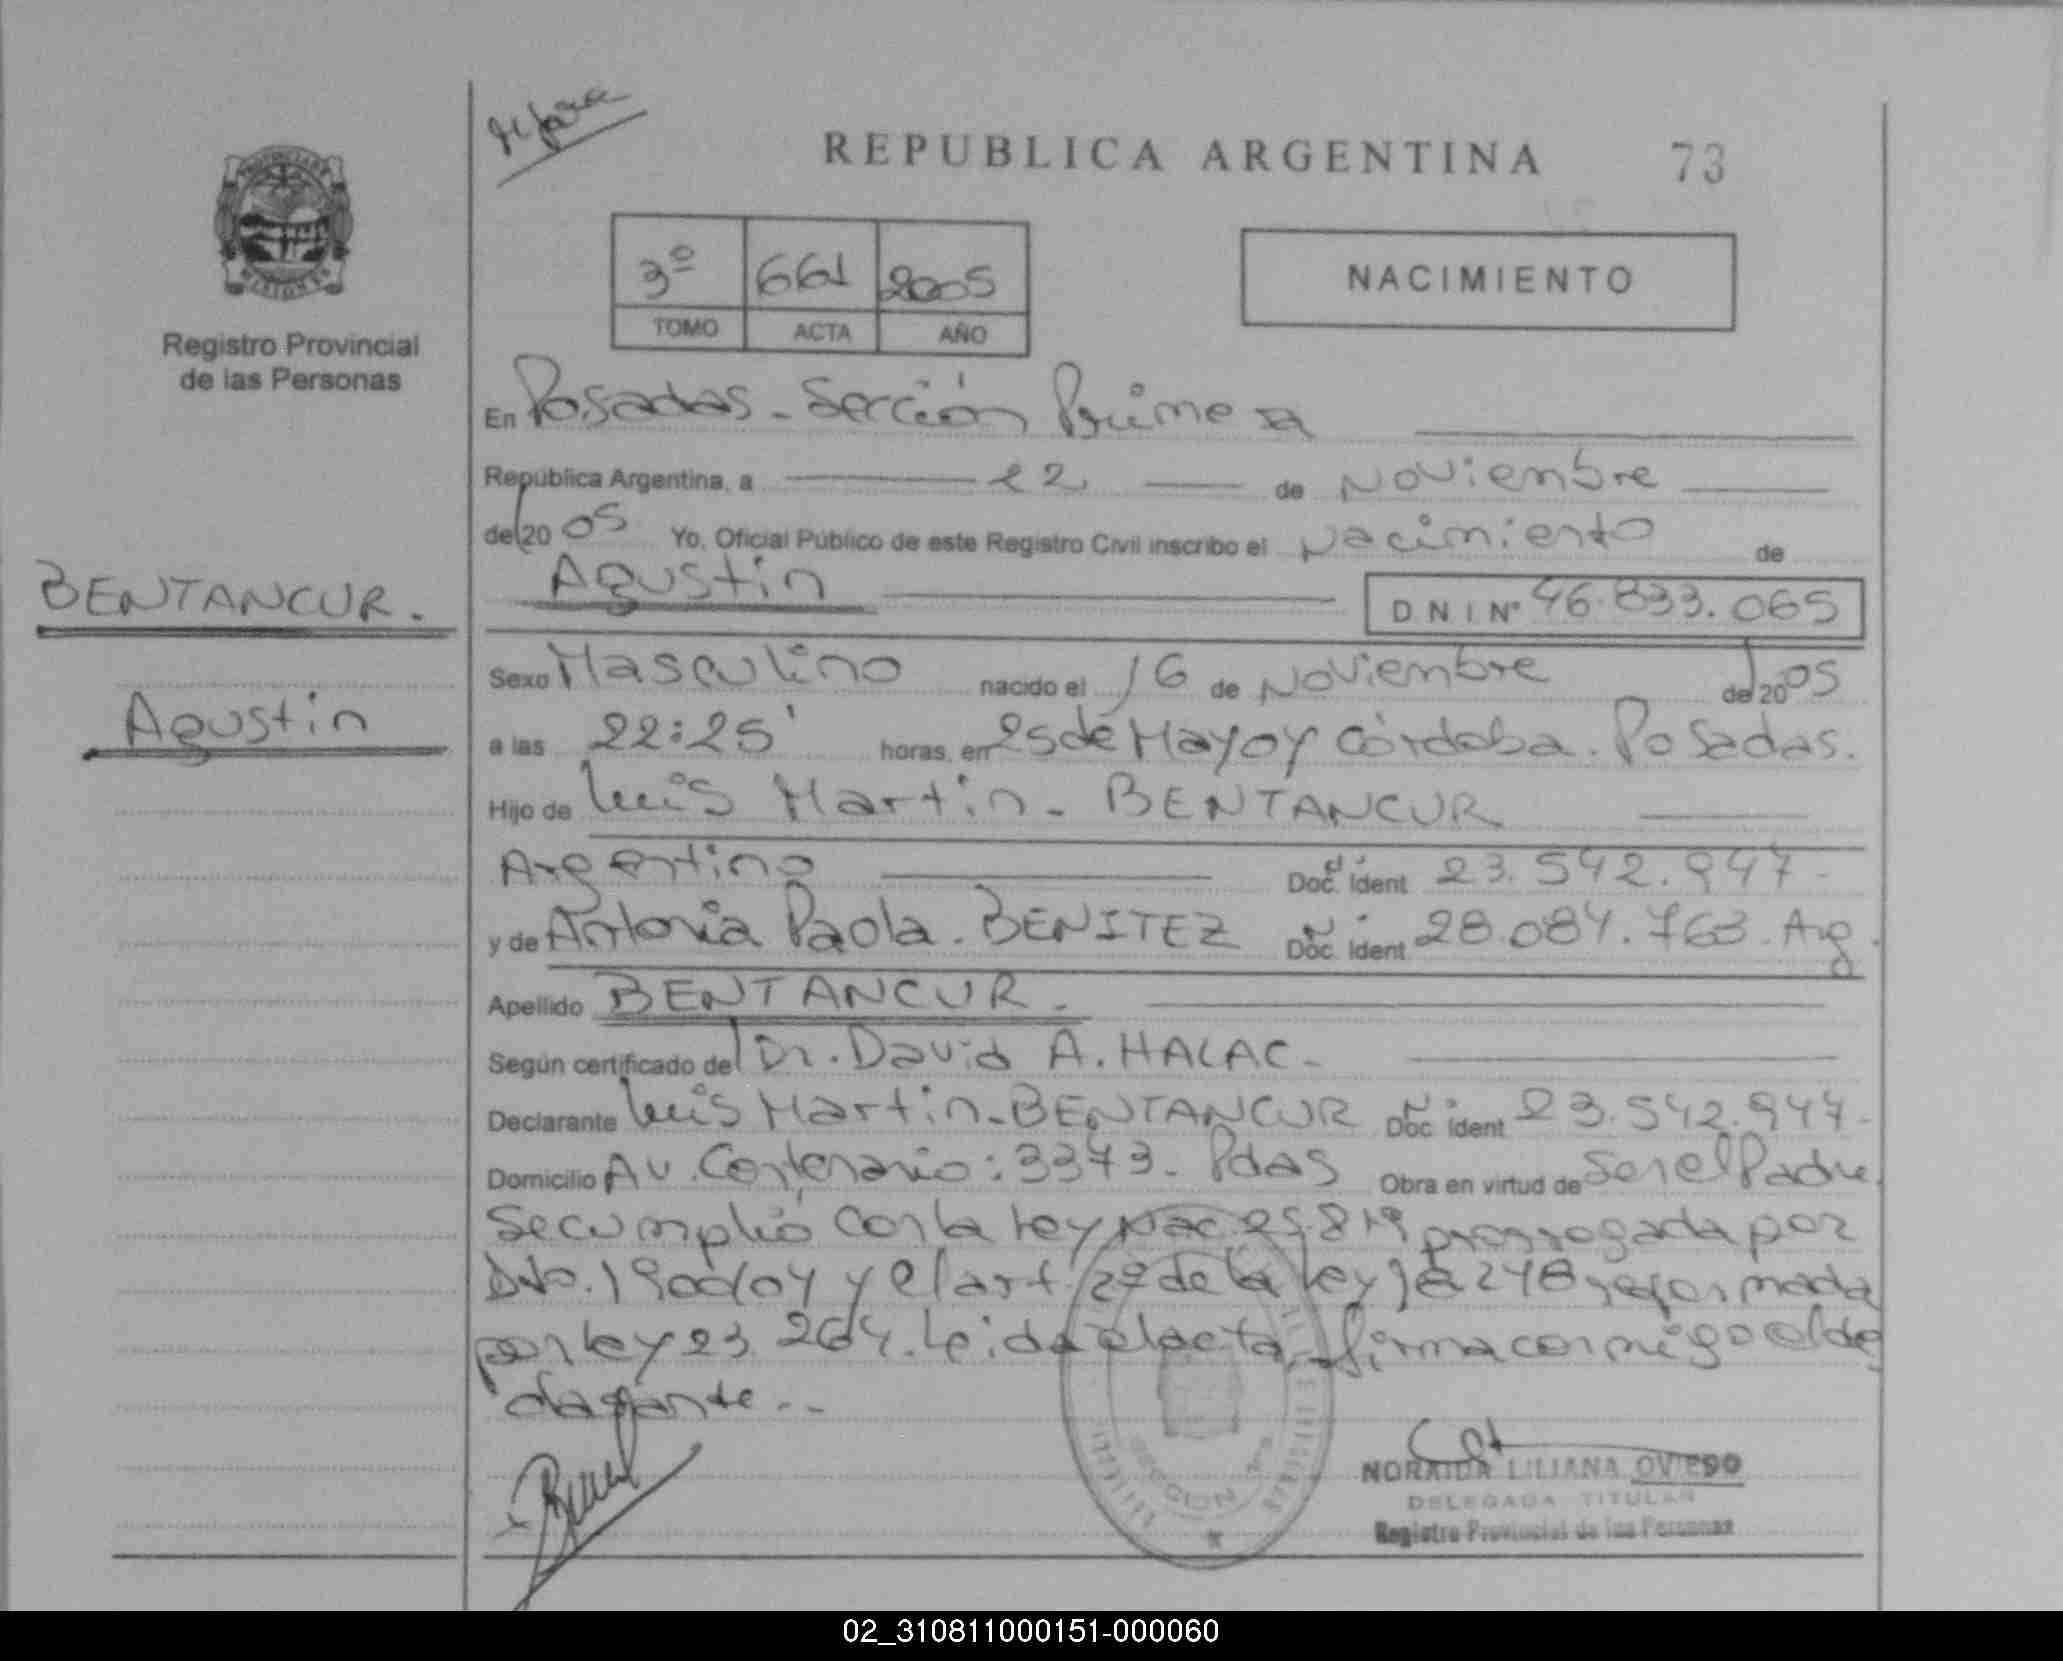 REPUBLICA ARGENTINA 73
PROVINCIA DE MISIONES
Registro Provincial
de las Personas
3º 661 2005
TOMO ACTA AÑO
NACIMIENTO
En Posadas - Sección Primera
República Argentina, a 22 de Noviembre
del 2005 Yo, Oficial Público de este Registro Civil inscribo el Nacimiento de
Agustin DNI Nº 46.833.065
BENTANCUR.
Agustin
Sexo Masculino nacido el 16 de Noviembre del 2005
a las 22:25' horas, en 25 de Mayo y Córdoba. Posadas.
Hijo de Luis Martin - BENTANCUR
Argentino Doc. Ident 23.542.947-
y de Antonia Paola. BENITEZ Doc. Ident 28.084.763. Arg.
Apellido BENTANCUR.
Según certificado del Dr. David A. HALAC-
Declarante Luis Martin - BENTANCUR Doc. Ident 23.542.947-
Domicilio Av. Centenario: 3373- Pdas Obra en virtud de Ser el Padre.
Se cumplió con la Ley Nac 25.819 prorrogada por
Dto. 1900/04 y el art. 2º de la Ley 18248 reformada
por ley 23.264. Leida el acta, firma conmigo el de
clarante..
NORAIDA LILIANA OVIEDO
DELEGADA TITULAR
Registro Provincial de las Personas
02_310811000151-000060